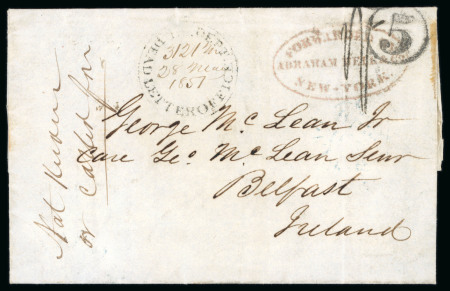 DEAD LETTER OFFICE
28
1851
FORWARDED
ABRAHAM BELL
NEW-YORK.
5
George Mc Lean Jr
Care Geo. Mc Lean Senr
Belfast
Ireland
Not Known
or called for